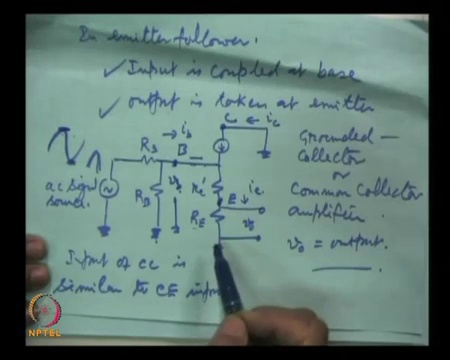 In emitter follower.
✓ Input is coupled at base
✓ output is taken at emitter
C ← ic
→ ib
Rs B
re'
E ↓ ie
RB
RE
vo
ac signal
source.
Grounded –
Collector
or
Common Collector
amplifier.
vo = output.
Input of CC is
Similar to CE input
NPTEL